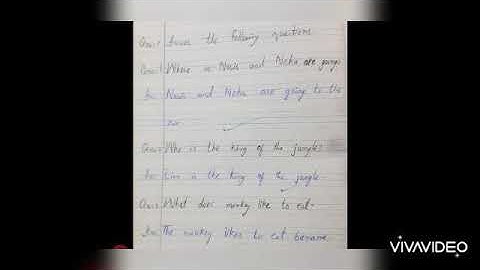 Ques: Answer the following questions
Ques: Where is Nasis and Neha are going?
Ans: Nasis and Neha are going to the
zoo.
Ques: Who is the king of the jungle?
Ans: Lion is the king of the jungle.
Ques: What does monkey like to eat.
Ans: The monkey likes to eat banana.
VIVAVIDEO